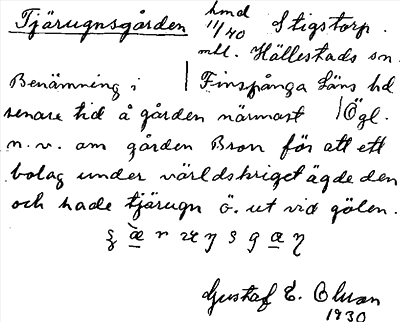 Tjärugnsgården hmd 11/40 Stigstorp.
mll. Hällestads sn.
Benämning i Finspånga läns hd
senare tid å gården närmast Ögl.
n. v. om gården Bron för att ett
bolag under världskriget ägde den
och hade tjärugn ö. ut vid gölen.
Gustaf E.
1930